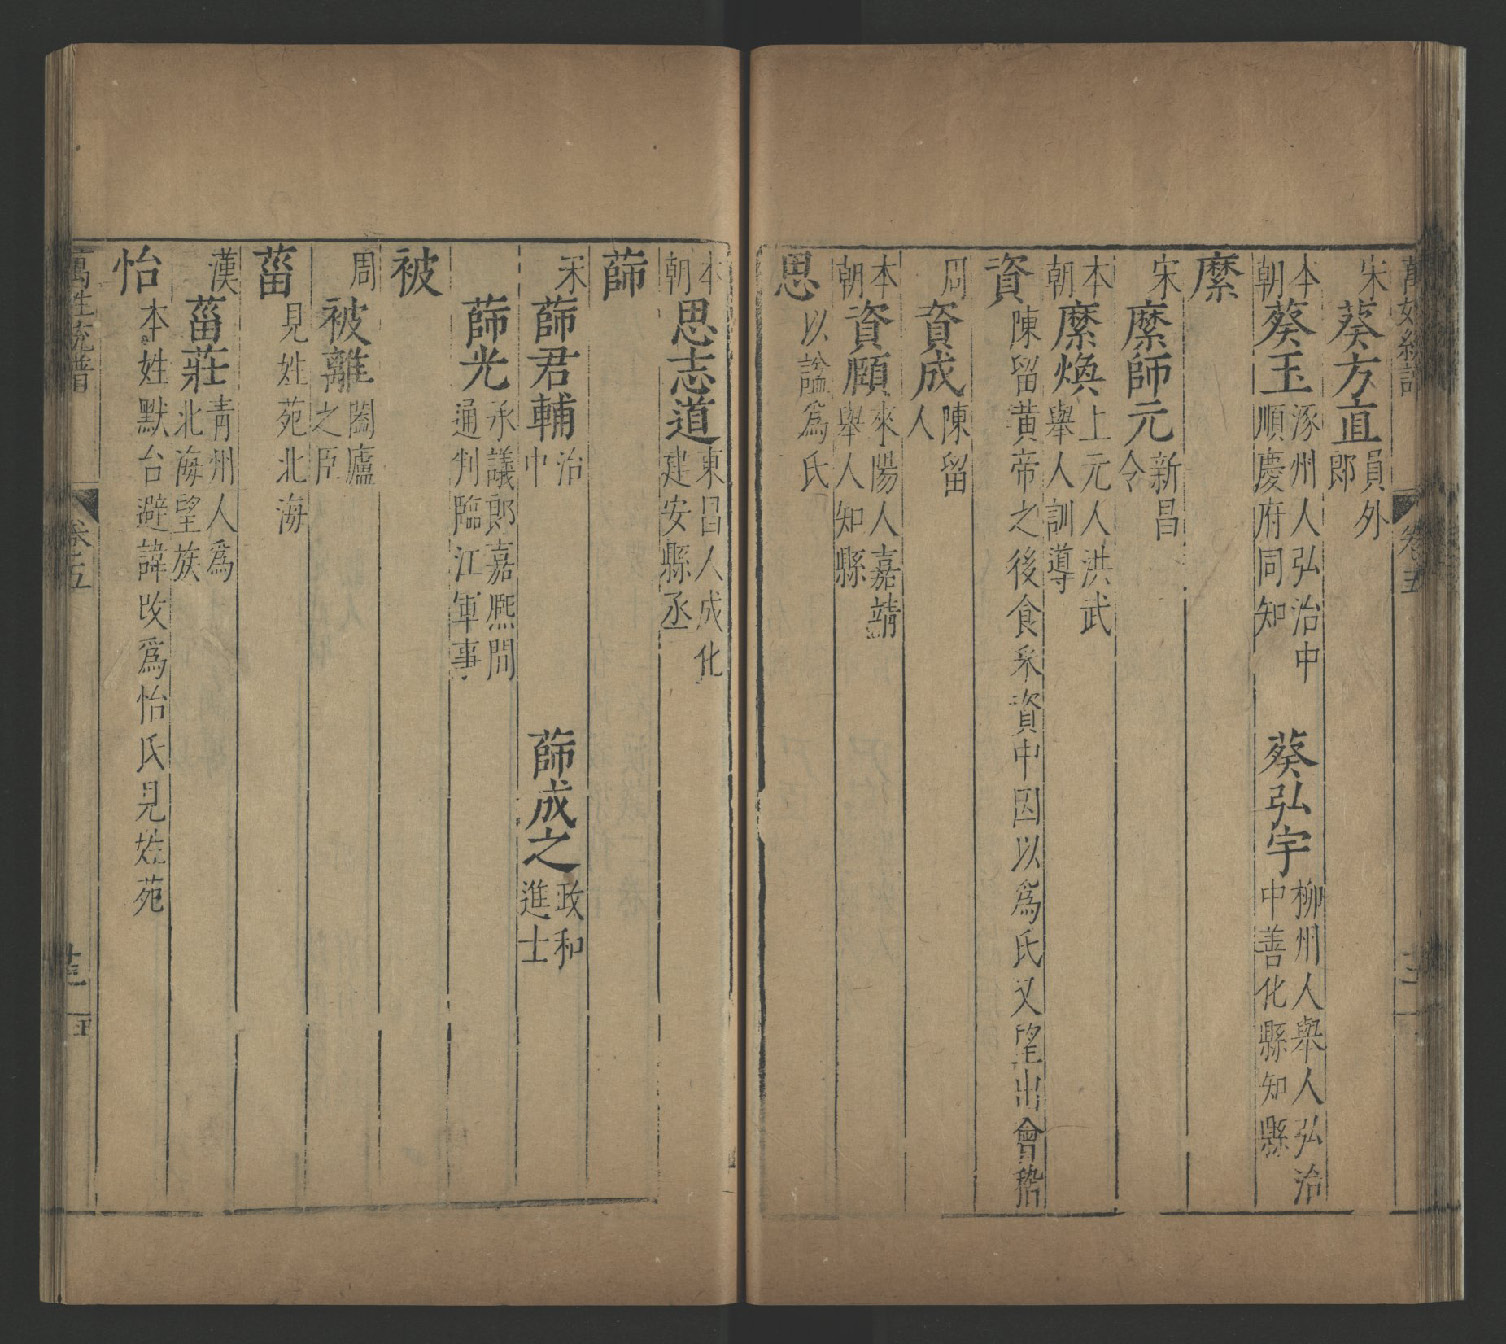 萬姓統譜
卷五
宋葵方直員外郎
本朝葵玉涿州人弘治中順慶府同知 葵弘宇柳州人舉人弘治中善化縣知縣
縻
宋縻師元新昌令
本朝縻煥上元人洪武舉人訓導
資陳留黃帝之後食采資中因以爲氏又望出會稽
周資成陳留人
本朝資願來陽人嘉靖舉人知縣
思以諡爲氏
本朝思志道東昌人成化建安縣丞
蒒
宋蒒君輔治中 蒒成之政和進士
蒒光承議郎嘉熈間通判臨江軍事
被
周被離闔廬之臣
菑見姓苑北海
漢菑莊青州人爲北海望族
怡本姓默台避諱改爲怡氏見姓苑
萬姓統譜
卷五